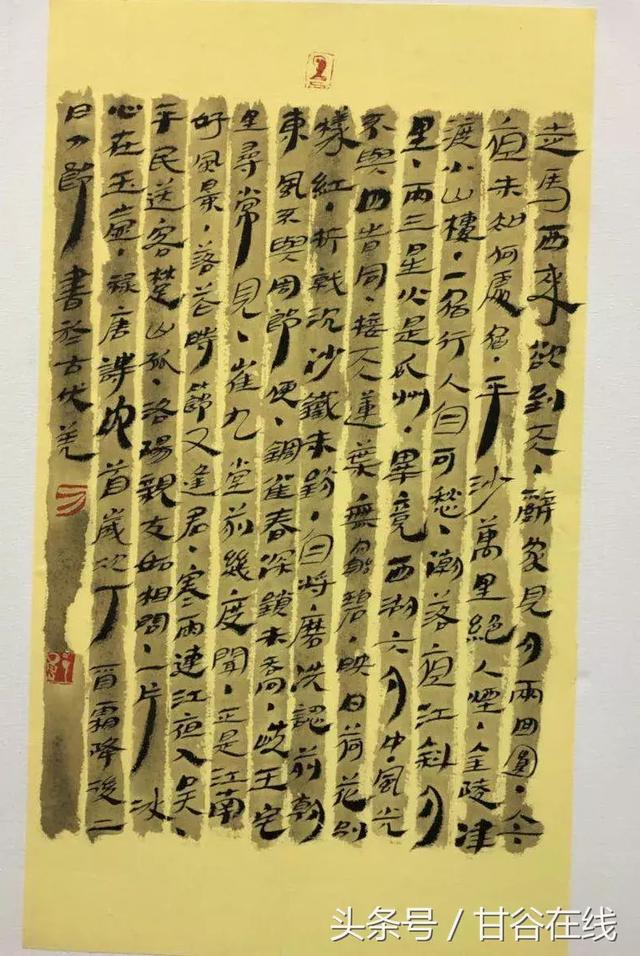 走馬西來欲到天、辭家見月兩回圓、今
夜未知何處宿、平沙萬里絕人煙、金陵津
渡小山樓、一宿行人自可愁、潮落夜江斜月
里、兩三星火是瓜州、畢竟西湖六月中、風光
不與四旹同、接天蓮葉無窮碧、映日荷花別
樣紅、折戟沉沙鐵未銷、自將磨洗認前朝
東風不與周郎便、銅雀春深鎖喬、岐王宅
里尋常見、崔九堂前幾度聞、正是江南
好風景、落花時節又逢君、寒雨連江夜入吴、
平民送客楚山孤、洛陽親友如相問、一片冰
心在玉壺、祿唐詩首歲次丁酉霜降後二
日節書於古伏羌
头条号 / 甘谷在线